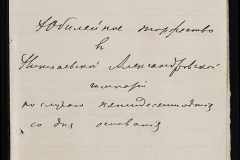 Юбилейное торжество
в
Николаевской Александровской
по случаю пятидесятилетія
со дня основанія